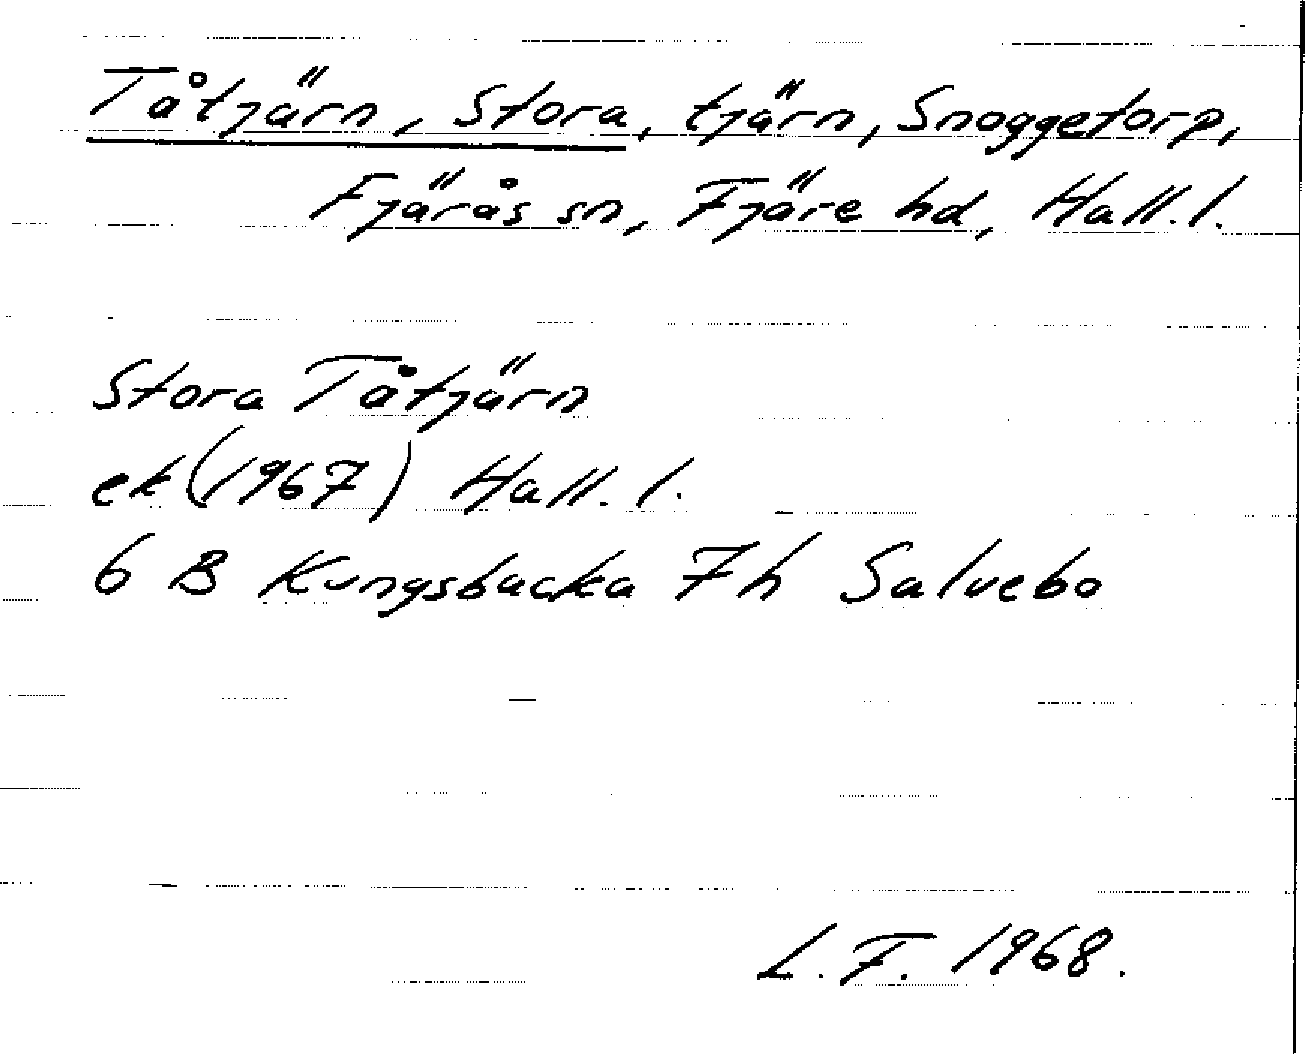 Tåtjärn, Stora, tjärn, Snoggetorp,
Fjärås sn, Fjäre hd, Hall. l.
Stora Tåtjärn
ek (1967) Hall. l.
6 B Kungsbacka 7h Saluebo
L. F. 1968.